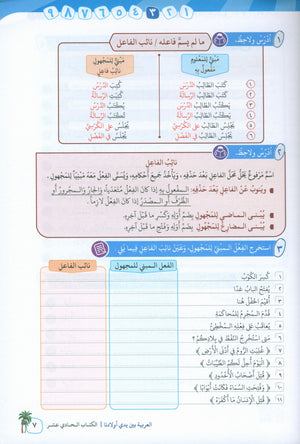 ١ ٢ ٣ ٤ ٥ ٦ ٧ ٨ ٩
١ أدْرُسْ ولاحِظْ.
ما لم يسمّ فاعله / نائب الفاعل
مَبْنِيٌّ لِلْمَعْلُومِ
مَفْعُولٌ بِهِ
مَبْنِيٌّ لِلْمَجْهُولِ
نائِبُ فاعِلٍ
١ كَتَبَ الطّالِبُ الدَّرْسَ كُتِبَ الدَّرْسُ
٢ كَتَبَ الطّالِبُ الرِّسالَةَ كُتِبَتِ الرِّسالَةُ
٣ يَكْتُبُ الطّالِبُ الدَّرْسَ يُكْتَبُ الدَّرْسُ
٤ يَكْتُبُ الطّالِبُ الرِّسالَةَ تُكْتَبُ الرِّسالَةُ
٥ يَجْلِسُ الطّالِبُ عَلى الكُرْسِيِّ يُجْلَسُ عَلى الكُرْسِيِّ
٦ يَجْلِسُ الطّالِبُ في الفَصْلِ يُجْلَسُ في الفَصْلِ
٢ أدْرُسْ ولاحِظْ.
نائِبُ الفاعِلِ
اسْمٌ مَرْفُوعٌ يَحُلُّ مَحَلَّ الفاعِلِ بَعْدَ حَذْفِهِ، وَيَأْخُذُ جَمِيعَ أَحْكامِهِ، وَيُسَمّى الفِعْلُ مَعَهُ مَبْنِيًّا لِلْمَجْهُولِ.
وَيَنُوبُ عَنِ الفاعِلِ بَعْدَ حَذْفِهِ: المَفْعُولُ بِهِ إذا كانَ الفِعْلُ مُتَعَدِّيًا، وَالجارُّ وَالمَجْرُورُ أو
الظَّرْفُ أو المَصْدَرُ إذا كانَ الفِعْلُ لازِمًا.
يُبْنى الماضي لِلْمَجْهُولِ بِضَمِّ أَوَّلِهِ وَكَسْرِ ما قَبْلَ آخِرِهِ.
يُبْنى المضارعُ لِلْمَجْهُولِ بِضَمِّ أَوَّلِهِ وَفَتْحِ ما قَبْلَ آخِرِهِ.
٣ استخرج الفِعْلَ المبنيَّ لِلْمَجْهُولِ، وَعَيِّنْ نائِبَ الفاعِلِ فِيما يَلي
الفعل المبني للمجهول نائب الفاعل
١ كُسِرَ الكُوبُ
٢ يُفتَحُ البابُ غدًا
٣ أُقيمَ الحَفْلُ هُنا
٤ قُدِّمَ المُجرمُ لِلمُحاكَمَةِ
٥ يُعاقَبُ عَلى فِعْلِهِ المُخْطِئُ
٦ مَتى اسْتُخْرِجَ النَّفْطُ في بِلادِكُمْ؟
٧ ﴿ غُلِبَتِ الرُّومُ في أَدْنى الأَرْضِ ﴾
٨ ﴿ اليَوْمَ أُحِلَّ لَكُمُ الطَّيِّباتُ ﴾
٩ ﴿ قُتِلَ أَصْحابُ الأُخْدُودِ ﴾
١٠ ﴿ وَفُتِحَتِ السَّماءُ فَكانَتْ أَبْوابًا ﴾
١١ ﴿ قُتِلَ الإِنْسانُ ما أَكْفَرَهُ ﴾
العربية بين يدي أولادنا | الكتاب الحادي عشر ٧